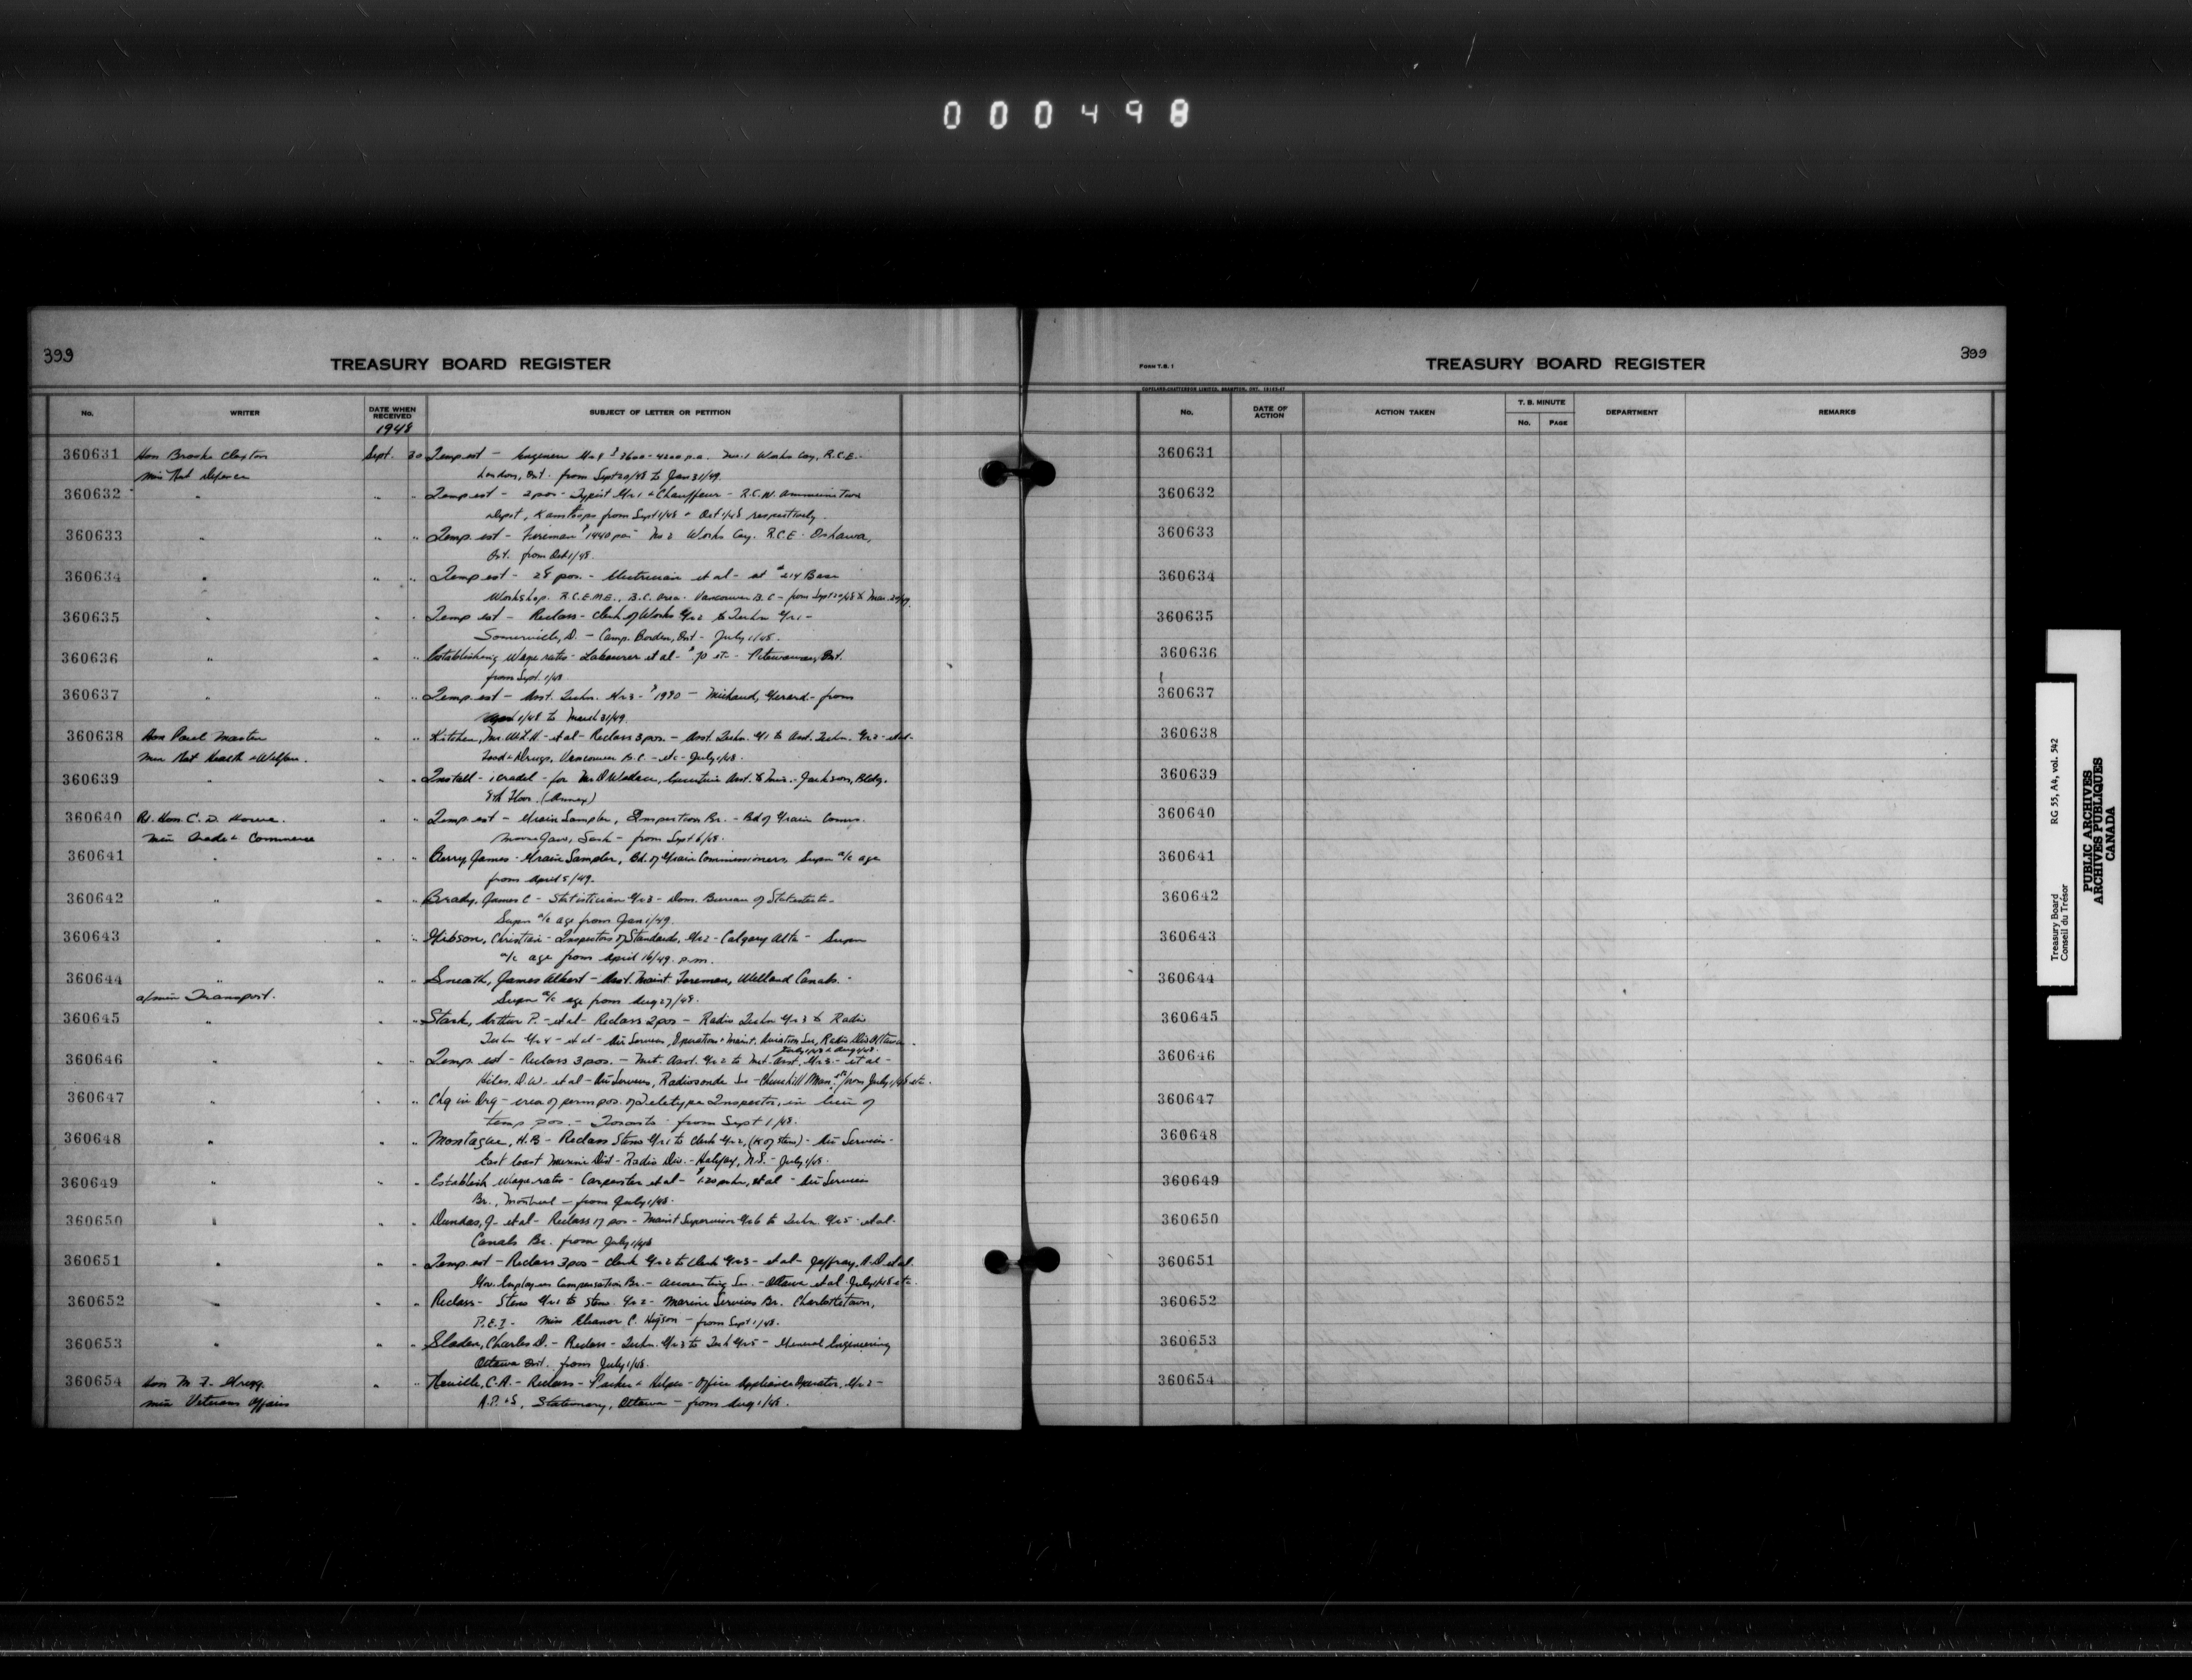 000498
399
TREASURY BOARD REGISTER
No. WRITER DATE WHEN RECEIVED SUBJECT OF LETTER OR PETITION
1948
360631 Hon Brooke Claxton Sept. 30 Temp est - Engineer Gr 4 $3600-4200 p.a. No. 1 Works Coy, R.C.E.
Min Nat Defence London, Ont. from Sept 20/48 to Jan 31/49.
360632 " " " Temp est - 2 pos - Typist Gr 1 & Chauffeur - R.C.N. Ammunition
Depot, Kamloops from Sept 1/48 & Oct 1/48 respectively.
360633 " " " Temp. est - Fireman $1440 pa - No 2 Works Coy. R.C.E. Oshawa,
Ont. from Oct 1/48.
360634 " " " Temp est - 28 pos. - Electrician et al - at #214 Base
Workshop. R.C.E.M.E., B.C. Area. Vancouver B.C - from Sept 20/48 to Mar.
360635 " " " Temp est - Reclass - Clerk of Works Gr 2 to Techn Gr 1 -
Somerville, D. - Camp. Borden, Ont - July 1/48.
360636 " " " Establishing Wage rates - Labourer et al - $.70 etc - Petawawa, Ont.
from Sept. 1/48
360637 " " " Temp. est - Asst. Techn. Gr 3 - $1980 - Michaud, Gerard - from
April 1/48 to March 31/49.
360638 Hon Paul Martin " " Kitchen, Mr. W.L.H. - et al - Reclass 3 pos. - Asst. Techn. Gr 1 to Asst. Techn. Gr 2 - et al -
Min Nat Health & Welfare. Food & Drugs, Vancouver B.C. - etc - July 1/48.
360639 " " " Install - 1 cradel - for Mr. Wallace, Executive Asst. to Min. - Jackson, Bldg.
8th Floor. (Annex)
360640 Rt. Hon. C. D. Howe. " " Temp. est - Grain Sampler, Inspection Br. - Bd of Grain Comrs.
Min Trade & Commerce Moose Jaw, Sask - from Sept 6/48.
360641 " " " Berry James - Grain Sampler, Bd. of Grain Commissioners, Supn a/c age
from April 5/49.
360642 " " " Brady, James C - Statistician Gr 3 - Dom. Bureau of Statistics -
Supn a/c age from Jan 1/49.
360643 " " " Gibson, Christian - Inspector of Standards, Gr 2 - Calgary Alta - Supn
a/c age from April 16/49. p.m.
360644 " " " Sneath, James Albert - Asst. Maint Foreman, Welland Canals. -
a/min Transport. Supn a/c age from Aug 27/48.
360645 " " " Stark, Arthur P. - et al - Reclass 2 pos - Radio Techn Gr 3 to Radio
Techn Gr 4 - et al - Air Services, Operation & Maint. Aviation Sec, Radio Div Ottawa.
July 1/48 & Aug 1/48.
360646 " " " Temp. est - Reclass 3 pos. - Met. Asst. Gr 2 to Met. Asst. Gr 3. - et al -
Hiles, D.W. - et al - Air Services, Radiosonde Sec - Churchill Man. etc from July 1/48 etc.
360647 " " " Chg in Org - crea of perm pos. of Teletype Inspector, in lieu of
temp pos. - Toronto - from Sept 1/48.
360648 " " " Montague, H.B - Reclass Steno Gr 1 to Clerk Gr 2, (K of Steno) - Air Services -
East Coast Marine Dist - Radio Div. - Halifax, N.S. - July 1/48.
360649 " " " Establish Wage rates - Carpenter et al - $1.20 per hr, et al - Air Services
Br., Montreal - from July 1/48.
360650 " " " Dundas, J. - et al - Reclass 17 pos - Maint Supervisor Gr 6 to Techn. Gr 5 - et al -
Canals Br. from July 1/48
360651 " " " Temp est - Reclass 3 pos - Clerk Gr 2 to Clerk Gr 3 - et al - Jeffray, A.D. et al.
Gov. Employees Compensation Br. - Accounting Sec. - Ottawa et al - July 1/48 etc.
360652 " " " Reclass - Steno Gr 1 to Steno. Gr 2 - Marine Services Br. Charlottetown,
P.E.I - Miss Eleanor C. Higson - from Sept 1/48.
360653 " " " Slader, Charles D. - Reclass - Techn. Gr 3 to Tech Gr 5 - General Engineering
Ottawa Ont. from July 1/48.
360654 Hon M. F. Gregg. " " Neville, C.A. - Reclass - Packer & Helper - Office Appliance Operator, Gr 2 -
Min Veterans Affairs A.P. & S, Stationery, Ottawa - from Aug 1/48.
399
FORM T.B. 1
TREASURY BOARD REGISTER
COPELAND-CHATTERSON LIMITED, BRAMPTON, ONT.
No. DATE OF ACTION ACTION TAKEN T. B. MINUTE No. PAGE DEPARTMENT REMARKS
360631
360632
360633
360634
360635
360636
360637
360638
360639
360640
360641
360642
360643
360644
360645
360646
360647
360648
360649
360650
360651
360652
360653
360654
Treasury Board RG 55, A4, vol. 542
Conseil du Trésor
PUBLIC ARCHIVES
ARCHIVES PUBLIQUES
CANADA